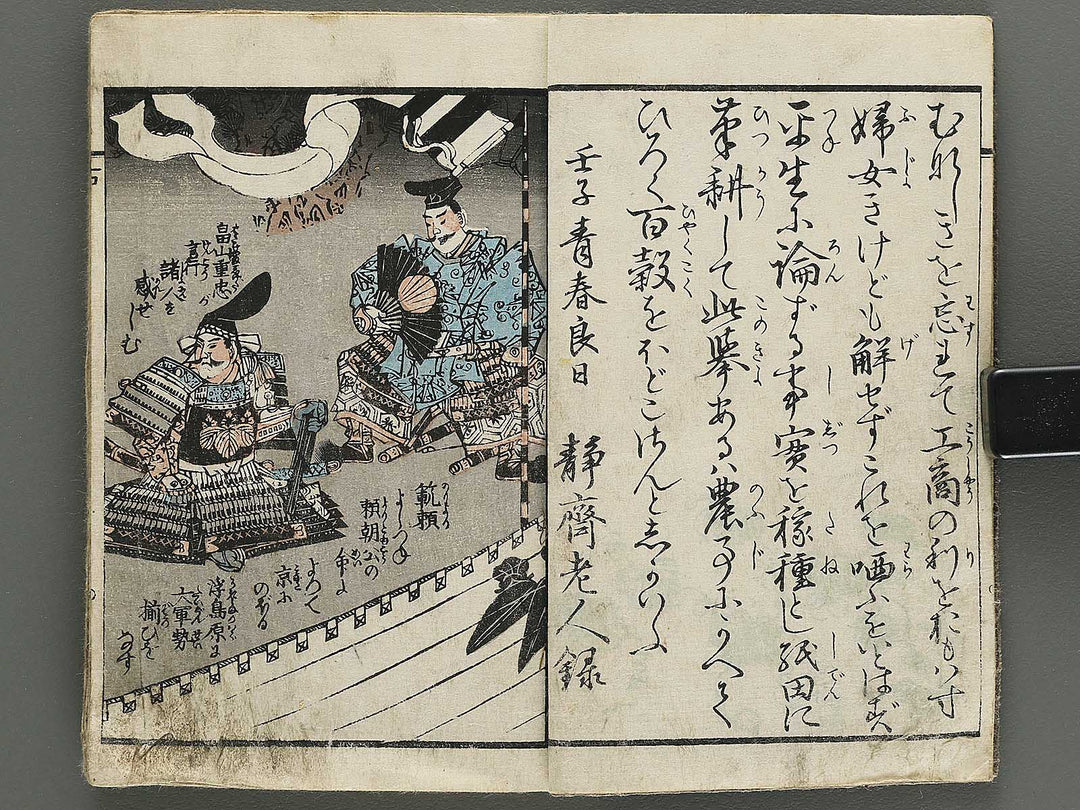 むなしきを忘れて工商の利をおもはず
婦女きけども解せずこれを哂ふをいとはず
平生に論ずる事実を稼種とし紙田に
筆耕して此挙あるハ農事にかへて
ひろく百穀をほどこさんと しかいふ
壬子青春良日 静齋老人録
畠山重忠が
書行
諸人を
感せしむ
範頼
よしつね
頼朝公の
命により
よつて
京にのぼる
浮島原に
大軍勢
揃ひをなす